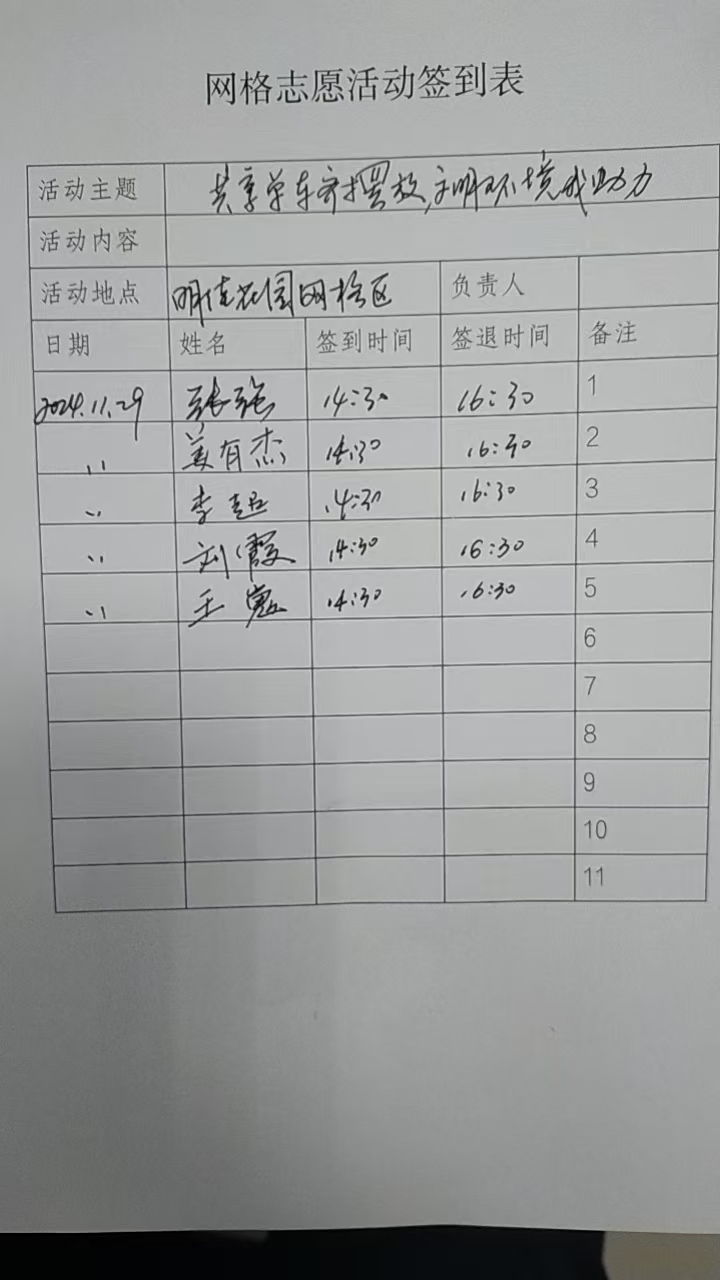 网格志愿活动签到表
活动主题 共享单车齐摆放,文明环境我助力
活动内容
活动地点 明佳花园网格区 负责人
日期 姓名 签到时间 签退时间 备注
2024.11.29 张强 14:30 16:30 1
,, 姜有杰 14:30 16:30 2
,, 李超 14:30 16:30 3
,, 刘霞 14:30 16:30 4
,, 王 14:30 16:30 5
6
7
8
9
10
11